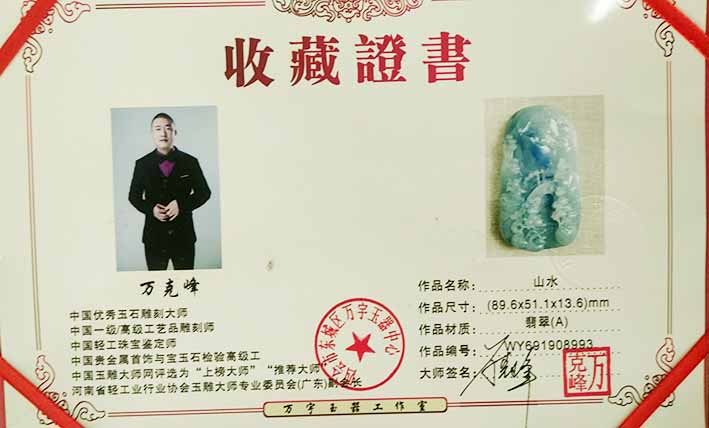 收藏證書
万克峰
中国优秀玉石雕刻大师
中国一级/高级工艺品雕刻师
中国轻工珠宝鉴定师
中国贵金属首饰与宝玉石检验高级工
中国玉雕大师网评选为“上榜大师”“推荐大师”
河南省轻工业行业协会玉雕大师专业委员会(广东)副会长
作品名称: 山水
作品尺寸: (89.6x51.1x13.6)mm
作品材质: 翡翠(A)
作品编号: WY691908993
大师签名:
万克峰
会市东城区万宇玉器中心
万宇玉器工作室